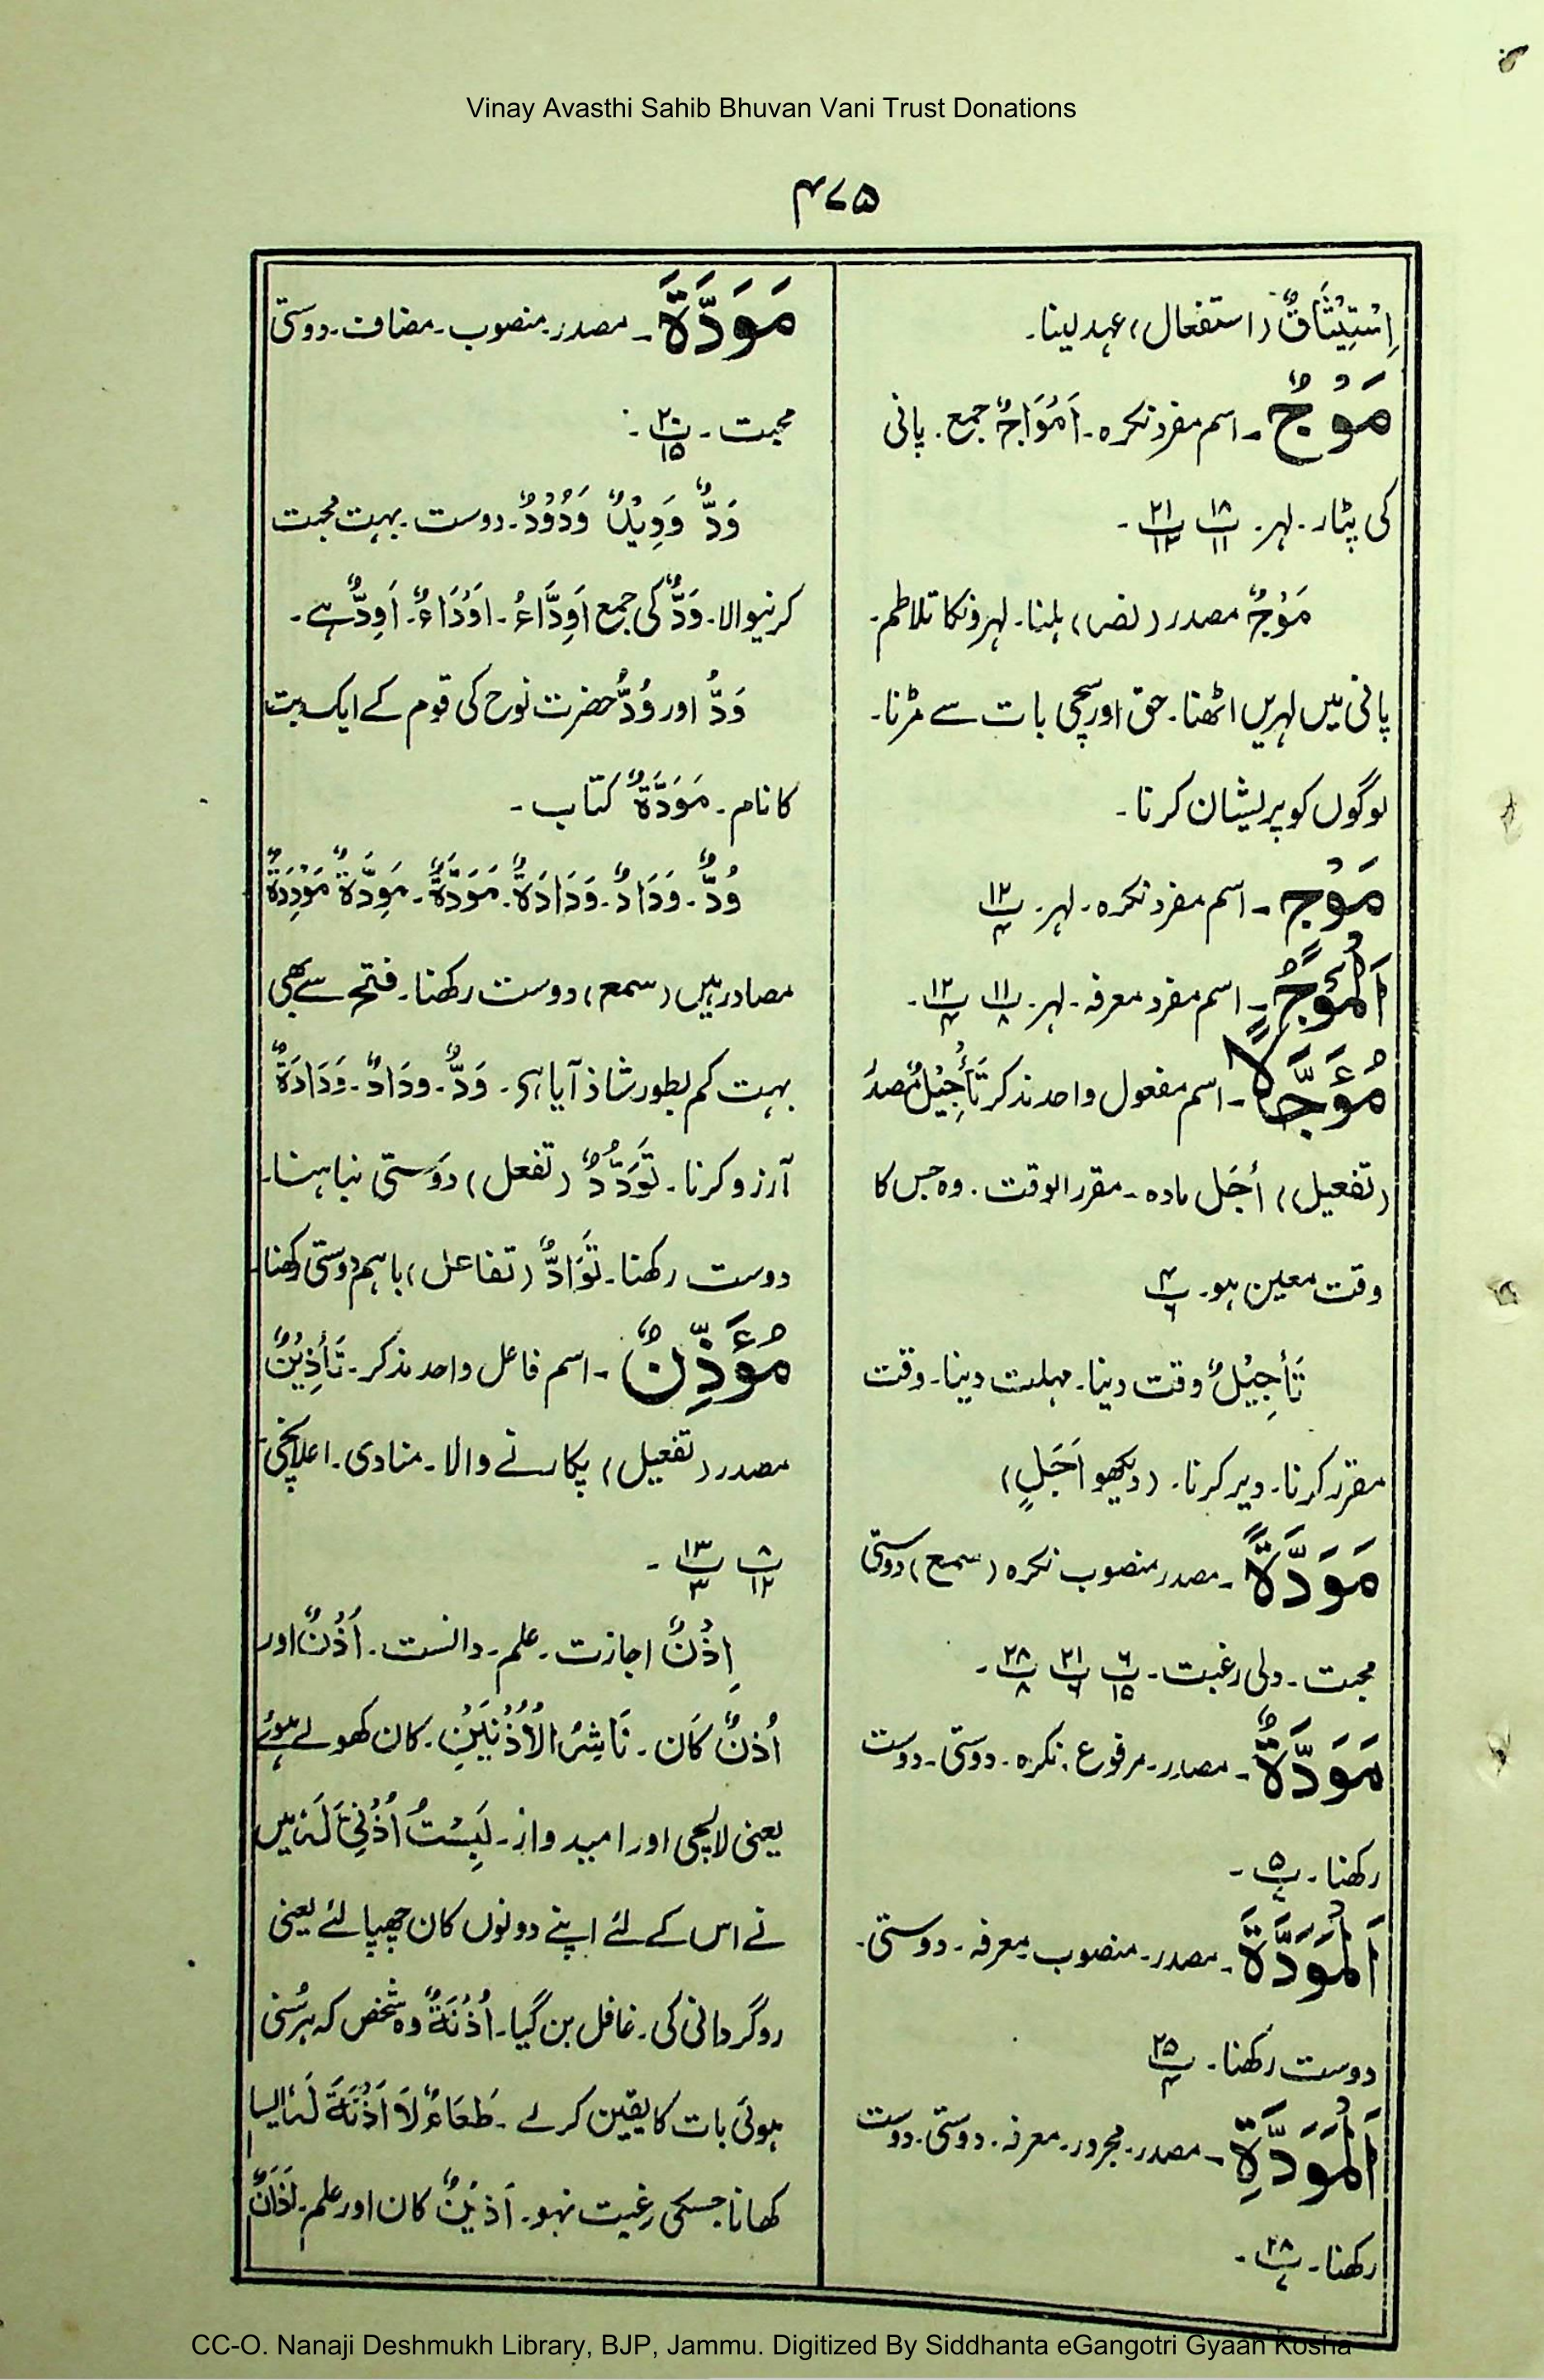 Vinay Avasthi Sahib Bhuvan Vani Trust Donations
۴۷۵
اِسْتِیْثَاقٌ (استفعال) عہد لینا۔
مَوْجٌ۔ اسم مفرد نکرہ۔ اَمْوَاجٌ جمع۔ پانی
کی پٹار۔ لہر۔ پ۱۸/۱۱ پ۲۱/۱۳۔
مَوْجٌ مصدر (نصر) ہلنا۔ لہرونکا تلاطم۔
پانی میں لہریں اٹھنا۔ حق اور سچی بات سے مڑنا۔
لوگوں کو پریشان کرنا۔
مَوْجٍ۔ اسم مفرد نکرہ۔ لہر۔ پ۱۲/۴
اَلْمَوْجُ۔ اسم مفرد معرفہ۔ لہر۔ پ۱۱/۸ پ۱۲/۴۔
مُؤَجَّلًا۔ اسم مفعول واحد مذکر تَأْجِیْلٌ مصدر
(تفعیل) أجَل مادہ۔ مقرر الوقت۔ وہ جس کا
وقت معین ہو۔ پ۴/۶
تَأجِیْلٌ وقت دینا۔ مہلت دینا۔ وقت
مقرر کرنا۔ دیر کرنا۔ (دیکھو اَجَلٍ)
مَوَدَّۃً۔ مصدر منصوب نکرہ (سمع) دوستی
محبت۔ دلی رغبت۔ پ۶/۱۵ پ۲۱/۶ پ۲۸/۸۔
مَوَدَّۃٌ۔ مصدر۔ مرفوع۔ نکرہ۔ دوستی۔ دوست
رکھنا۔ پ۵/۷۔
اَلْمَوَدَّۃَ۔ مصدر۔ منصوب۔ معرفہ۔ دوستی۔
دوست رکھنا۔ پ۲۵/۴
اَلْمَوَدَّۃِ۔ مصدر۔ مجرور۔ معرفہ۔ دوستی۔ دوست
رکھنا۔ پ۲۸/۷۔
مَوَدَّۃَ۔ مصدر۔ منصوب۔ مضاف۔ دوستی
محبت۔ پ۲۰/۱۵۔
وَدٌّ وَوِیْلٌ وَدُوْدٌ۔ دوست۔ بہت محبت
کرنیوالا۔ وَدٌّ کی جمع اَوِدَّاءُ۔ اَوْدَاءٌ۔ اَوِدٌّ ہے۔
وَدُّ اور وُدُّ حضرت نوح کی قوم کے ایک بت
کا نام۔ مَوَدَّۃٌ کتاب۔
وُدٌّ۔ وَدَادٌ۔ وَدَادَۃٌ۔ مَوَدَّۃٌ۔ مَوِدَّۃٌ مَوْدِدَۃٌ
مصادر ہیں (سمع) دوست رکھنا۔ فتح سے بھی
بہت کم بطور شاذ آیا ہے۔ وَدٌّ۔ ودَادٌ۔ وَدَادَۃٌ
آرزو کرنا۔ تَوَدُّدٌ (تفعل) دوستی نباہنا۔
دوست رکھنا۔ تَوَادٌّ (تفاعل) باہم دوستی رکھنا
مُؤَذِّنٌ۔ اسم فاعل واحد مذکر۔ تَأْذِیْنٌ
مصدر (تفعیل) پکارنے والا۔ منادی۔ اعلانچی
پ۸/۱۲ پ۱۳/۳۔
اِذْنٌ اجازت۔ علم۔ دانست۔ اَذْنٌ اور
اُذنٌ کَان۔ نَاشِرُ الْاُذْنَیْنِ۔ کان کھولے ہوئے
یعنی لالچی اور امیدوار۔ لَبِسْتُ اُذُنِیْ لَہٗ میں
نے اس کے لئے اپنے دونوں کان چھپا لئے یعنی
روگردانی کی۔ غافل بن گیا۔ اُذُنَۃٌ وہ شخص کہ ہر سُنی
ہوئی بات کا یقین کرلے۔ طَعَامٌ لَا اَذَنَۃَ لَہٗ ایسا
کھانا جسکی رغبت نہو۔ اَذِیْنٌ کان اور علم۔ اَذَانٌ
CC-O. Nanaji Deshmukh Library, BJP, Jammu. Digitized By Siddhanta eGangotri Gyaan Kosha